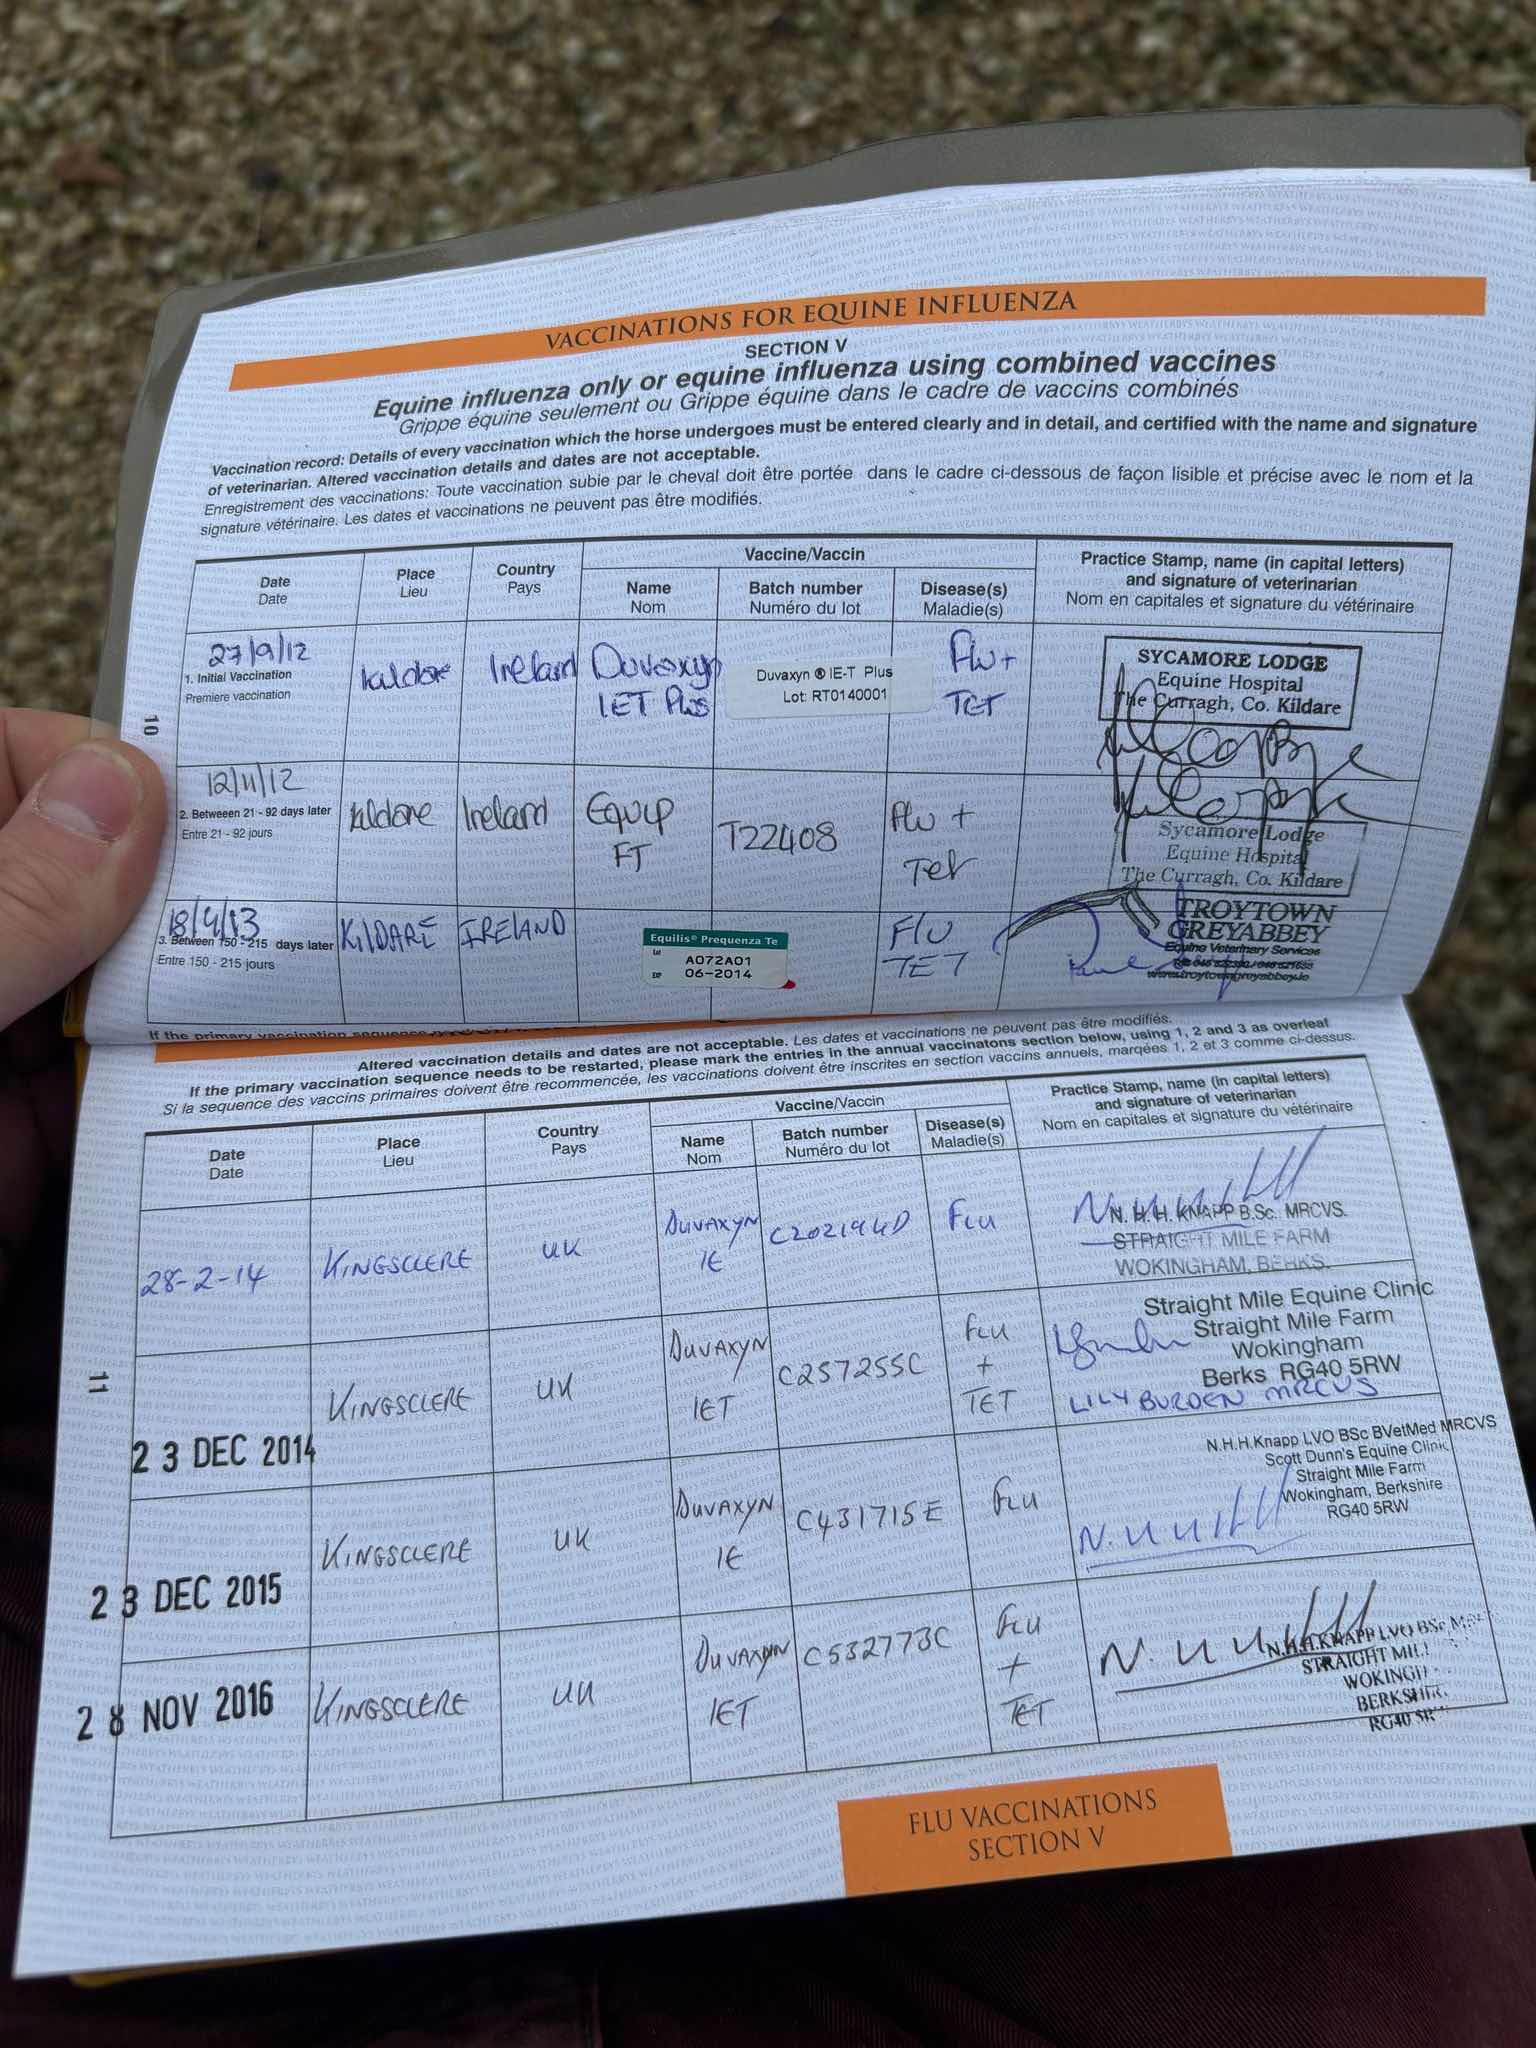 VACCINATIONS FOR EQUINE INFLUENZA
SECTION V
Equine influenza only or equine influenza using combined vaccines
Grippe équine seulement ou Grippe équine dans le cadre de vaccins combinés
Vaccination record: Details of every vaccination which the horse undergoes must be entered clearly and in detail, and certified with the name and signature
of veterinarian. Altered vaccination details and dates are not acceptable.
Enregistrement des vaccinations: Toute vaccination subie par le cheval doit être portée dans le cadre ci-dessous de façon lisible et précise avec le nom et la
signature vétérinaire. Les dates et vaccinations ne peuvent pas être modifiés.
Date
Date
Place
Lieu
Country
Pays
Vaccine/Vaccin
Name
Nom
Batch number
Numéro du lot
Disease(s)
Maladie(s)
Practice Stamp, name (in capital letters)
and signature of veterinarian
Nom en capitales et signature du vétérinaire
27/9/12
1. Initial Vaccination
Premiere vaccination
Kildare
Ireland
Duvaxyn
IET Plus
Duvaxyn ® IE-T Plus
Lot: RT0140001
Flu +
TET
SYCAMORE LODGE
Equine Hospital
The Curragh, Co. Kildare
10
12/11/12
2. Betweeen 21 - 92 days later
Entre 21 - 92 jours
Kildare
Ireland
Equip
FT
T22408
Flu +
Tet
Sycamore Lodge
Equine Hospital
The Curragh, Co. Kildare
18/4/13
3. Between 150 - 215 days later
Entre 150 - 215 jours
KILDARE
IRELAND
Equilis® Prequenza Te
Lot
A072A01
EXP
06-2014
FLU
TET
TROYTOWN
GREYABBEY
Equine Veterinary Services
www.troytowngreyabbey.ie
If the primary vaccination sequence
Altered vaccination details and dates are not acceptable. Les dates et vaccinations ne peuvent pas être modifiés.
If the primary vaccination sequence needs to be restarted, please mark the entries in the annual vaccinatons section below, using 1, 2 and 3 as overleaf
Si la sequence des vaccins primaires doivent être recommencée, les vaccinations doivent être inscrites en section vaccins annuels, marquées 1, 2 et 3 comme ci-dessus.
Date
Date
Place
Lieu
Country
Pays
Vaccine/Vaccin
Name
Nom
Batch number
Numéro du lot
Disease(s)
Maladie(s)
Practice Stamp, name (in capital letters)
and signature of veterinarian
Nom en capitales et signature du vétérinaire
28-2-14
KINGSCLERE
UK
DUVAXYN
IE
C202194D
FLU
N. H. H. KNAPP B.Sc. MRCVS.
STRAIGHT MILE FARM
WOKINGHAM, BERKS.
11
23 DEC 2014
KINGSCLERE
UK
DUVAXYN
IET
C257255C
FLU
+
TET
Straight Mile Equine Clinic
Straight Mile Farm
Wokingham
Berks RG40 5RW
LILY BURDEN MRCVS
23 DEC 2015
KINGSCLERE
UK
DUVAXYN
IE
C431715E
FLU
N.H.H.Knapp LVO BSc BVetMed MRCVS
Scott Dunn's Equine Clinic
Straight Mile Farm
Wokingham, Berkshire
RG40 5RW
28 NOV 2016
KINGSCLERE
UK
DUVAXYN
IET
C532773C
FLU
+
TET
N.H.H.KNAPP LVO BSc
STRAIGHT MIL
WOKINGH
BERKSHIR
RG40 5R
FLU VACCINATIONS
SECTION V